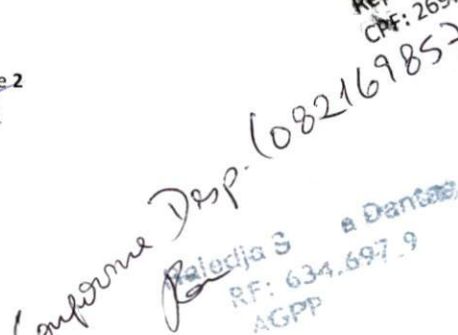 CPF: 269
e 2
Conforme Desp. (082169852
S a Dantas
RF: 634.697.9
AGPP